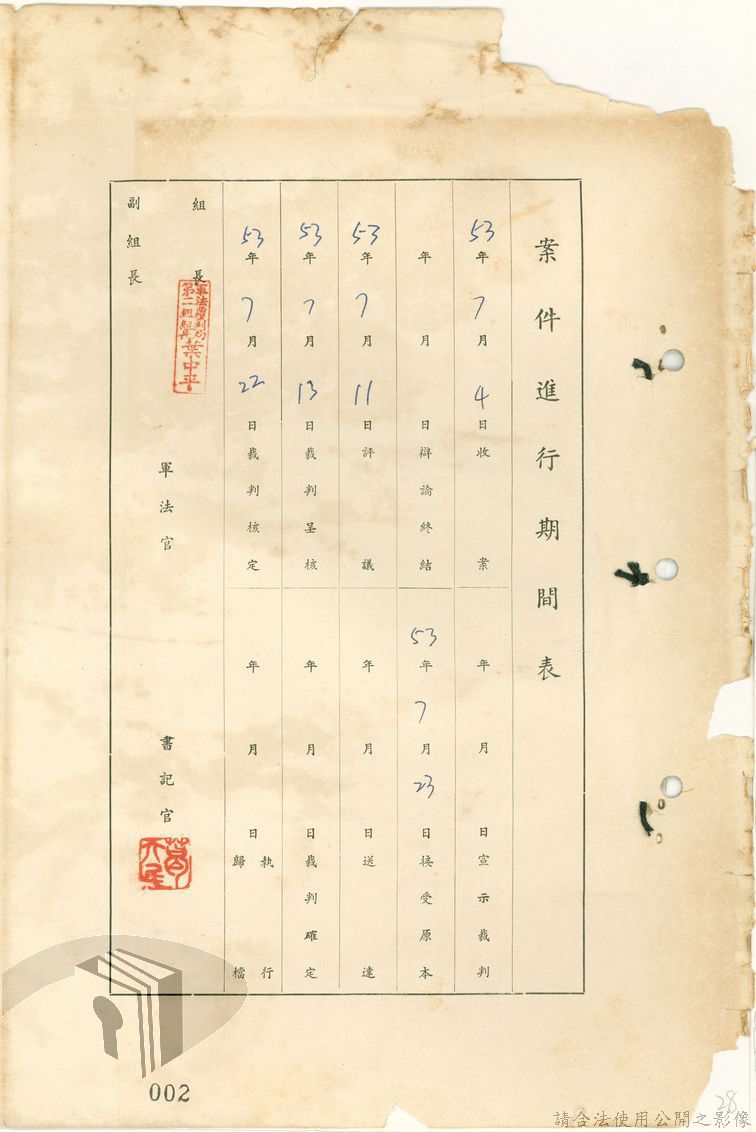 案件進行期間表
53年7月4日收案
年月日宣示裁判
年月日辯論終結
53年7月23日接受原本
53年7月11日評議
年月日送達
53年7月13日裁判呈核
年月日裁判確定
53年7月22日裁判核定
年月日執行歸檔
組長
軍法覆判局第二組組長葉中平
副組長
軍法官
書記官
002
28
請合法使用公開之影像